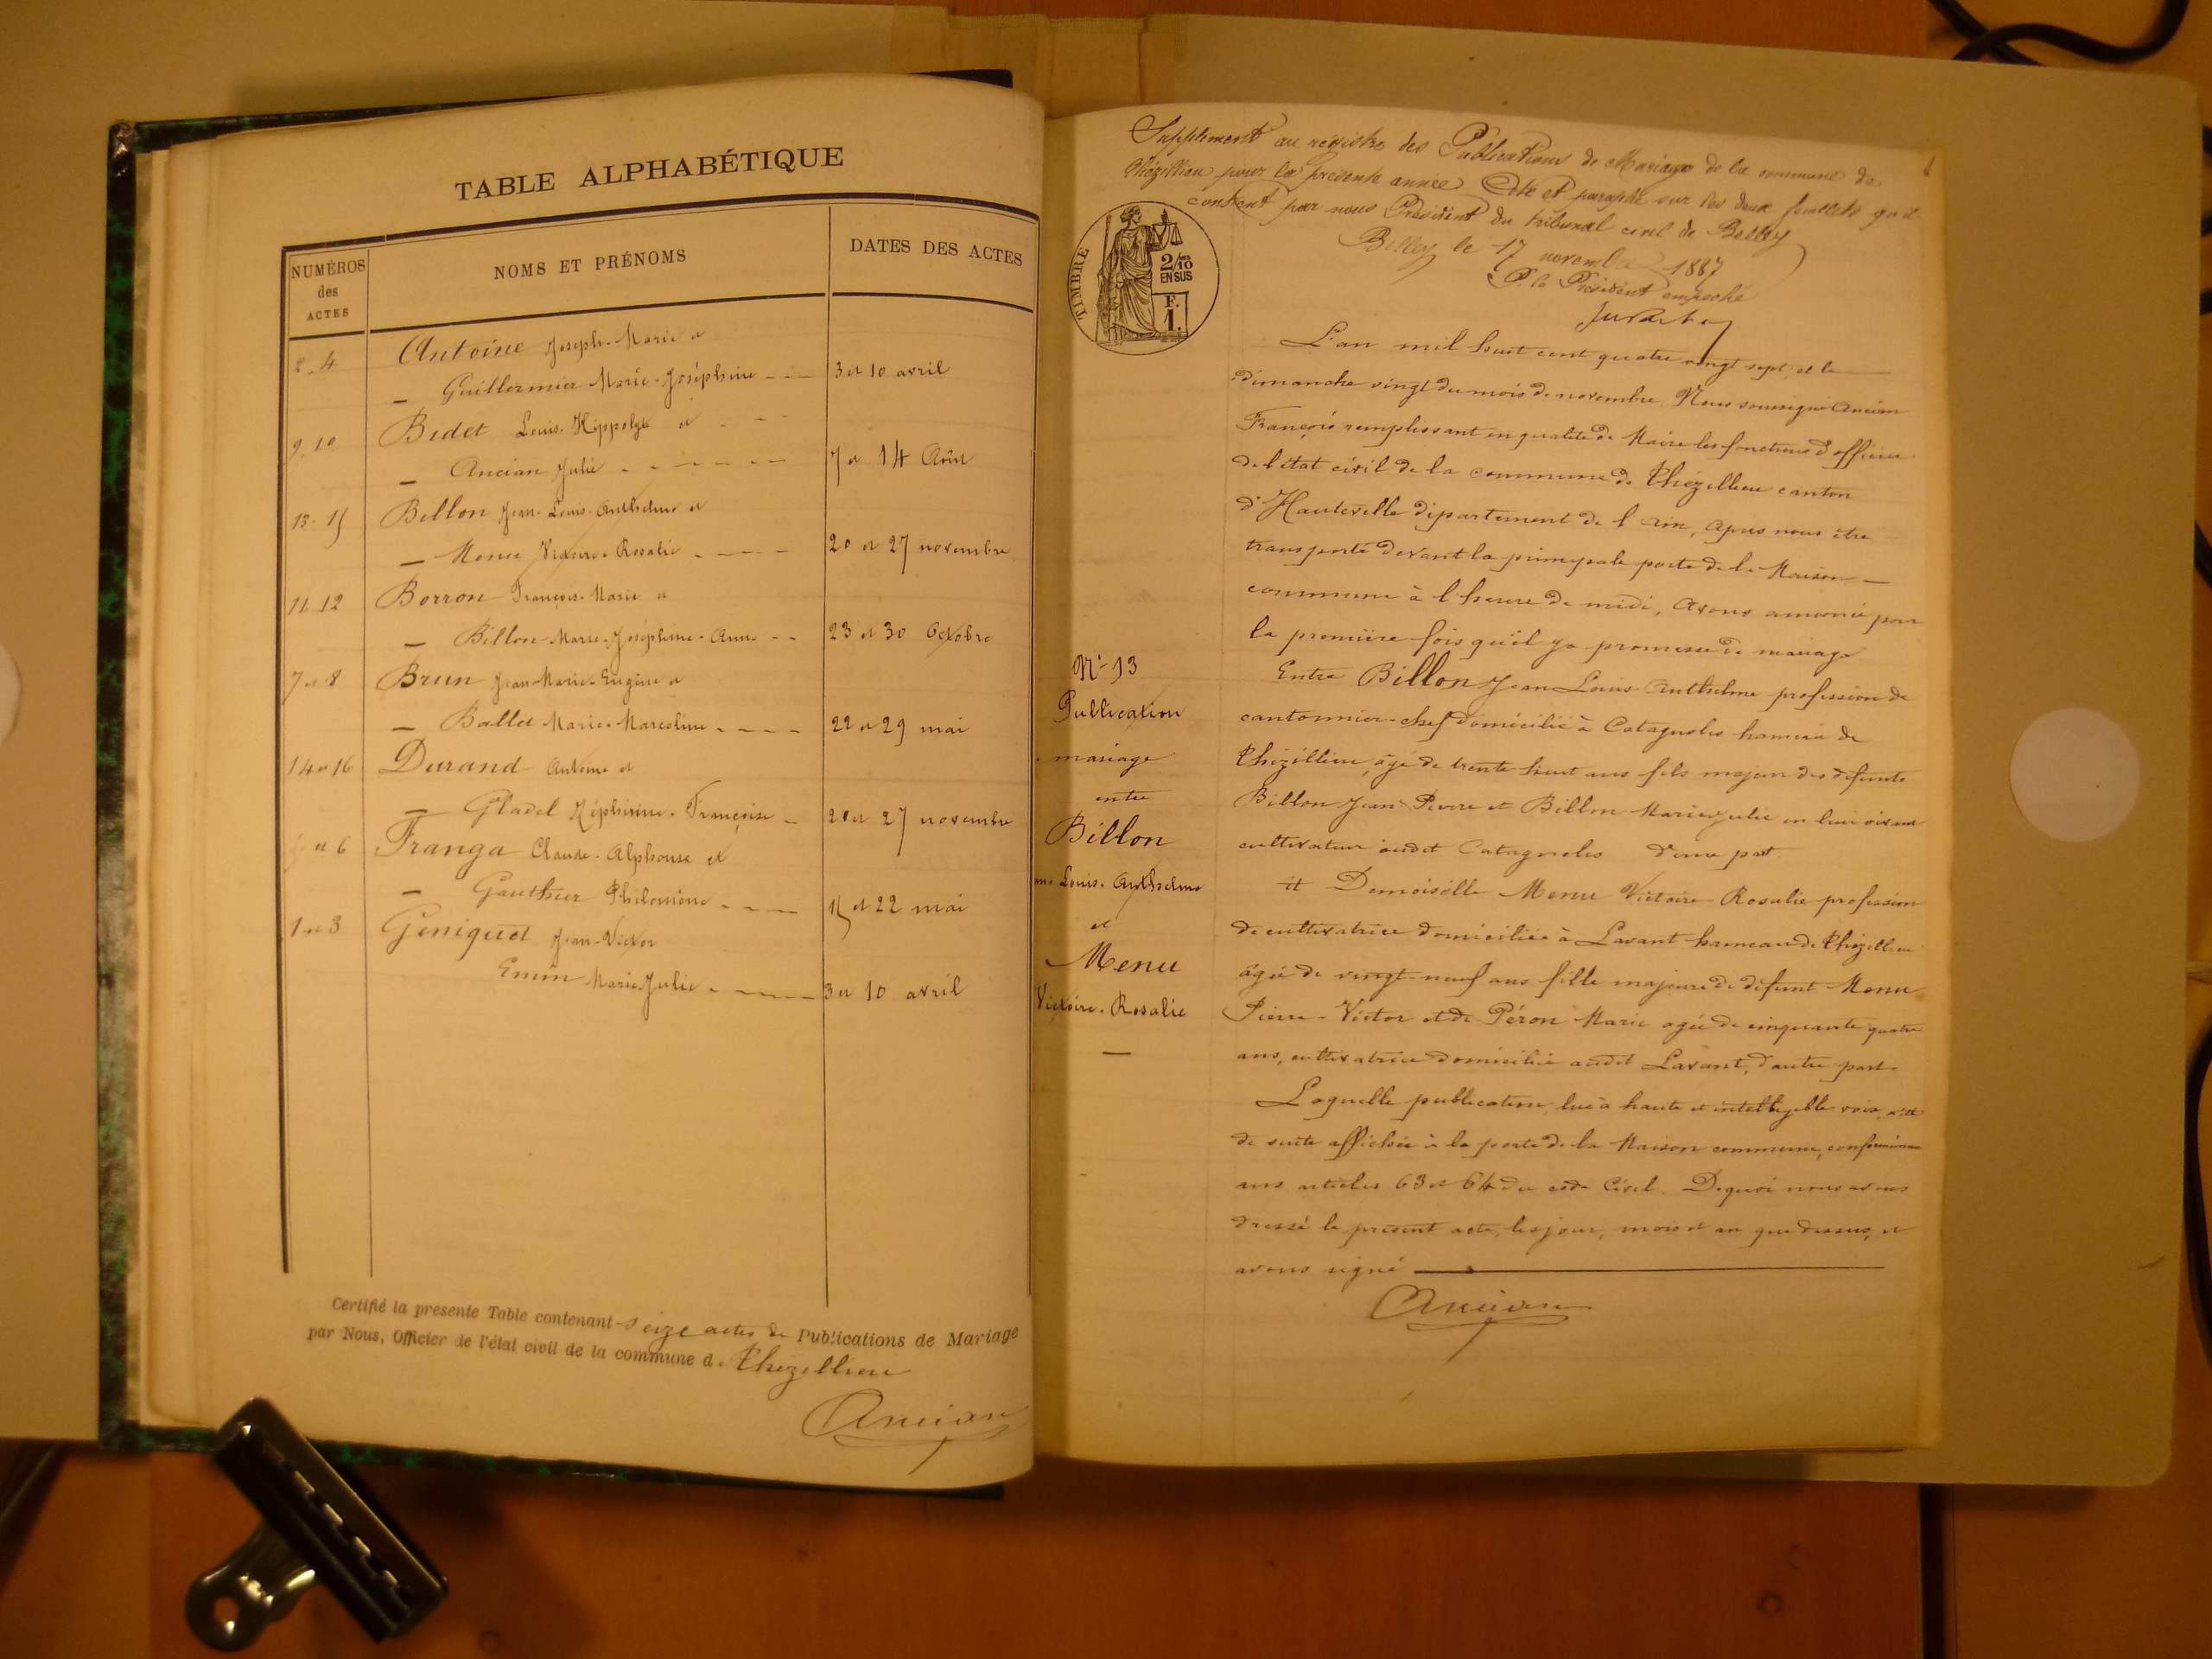 TABLE ALPHABÉTIQUE
NUMÉROS
des
ACTES
NOMS ET PRÉNOMS
DATES DES ACTES
2.4 Antoine Joseph-Marie et
_ Guillermier Marie-Joséphine 3 et 10 avril
9.10 Bidet Louis-Hippolyte et
_ Ancian Julie 7 et 14 Août
13.15 Billon Jean-Louis-Anthelme et
_ Menu Victoire-Rosalie 20 et 27 novembre
11.12 Borron François-Marie et
_ Billon Marie-Joséphine-Anne 23 et 30 Octobre
7 et 8 Brun Jean-Marie-Eugène et
_ Ballet Marie-Marceline 22 et 29 mai
14 et 16 Durand Antoine et
_ Gladel Zéphirine-Françoise 20 et 27 novembre
et 6 Franga Claude-Alphonse et
_ Gauthier Philomène 15 et 22 mai
1 et 3 Géniquet Jean-Victor
Emin Marie Julie 3 et 10 avril
Certifié la presente Table contenant seize actes de Publications de Mariage
par Nous, Officier de l'état civil de la commune d. Thézillieu
Ancian
Supplément au régistre des Publications de Mariage de la commune de
Thézillieu pour la présente année Coté et paraphé sur les deux feuillets qu'il
contient par nous Président du tribunal civil de Belley
Belley le 17 novembre 1887
P. le Président empeché
TIMBRE
2/10
EN SUS
F.
1.
L'an mil huit cent quatre vingt sept et le
dimanche vingt du mois de novembre. Nous soussigné Ancian
François remplissant en qualité de Maire les fonctions d'officier
de l'état civil de la commune de Thézillieu canton
d'Hauteville département de l'Ain, Après nous être
transporté devant la principale porte de la Maison
commune à l'heure de midi, Avons annoncé pour
la première fois qu'il y a promesse de mariage
Entre Billon Jean Louis Anthelme profession de
cantonnier-chef domicilié à Catagnoles hameau de
Thézillieu, âgé de trente huit ans fils majeur des défunts
Billon Jean Pierre et Billon Marie Julie en leur vivant
cultivateur audit Catagnoles d'une part.
et Demoiselle Menu Victoire Rosalie profession
de cultivatrice domiciliée à Lavant hameau de Thézillieu
âgée de vingt-neuf ans fille majeure de défunt Menu
Pierre-Victor et de Péron Marie agée de cinquante quatre
ans, cultivatrice domiciliée audit Lavant, d'autre part.
Laquelle publication lue à haute et intelligible voix a été
de suite affichée à la porte de la Maison commune, conformément
aux articles 63 et 64 du code Civil. De quoi nous avons
dressé le présent acte, les jour, mois et an que dessus, et
avons signé
Ancian
N° 13
Publication
mariage
entre
Billon
Louis-Anthelme
et
Menu
Victoire-Rosalie